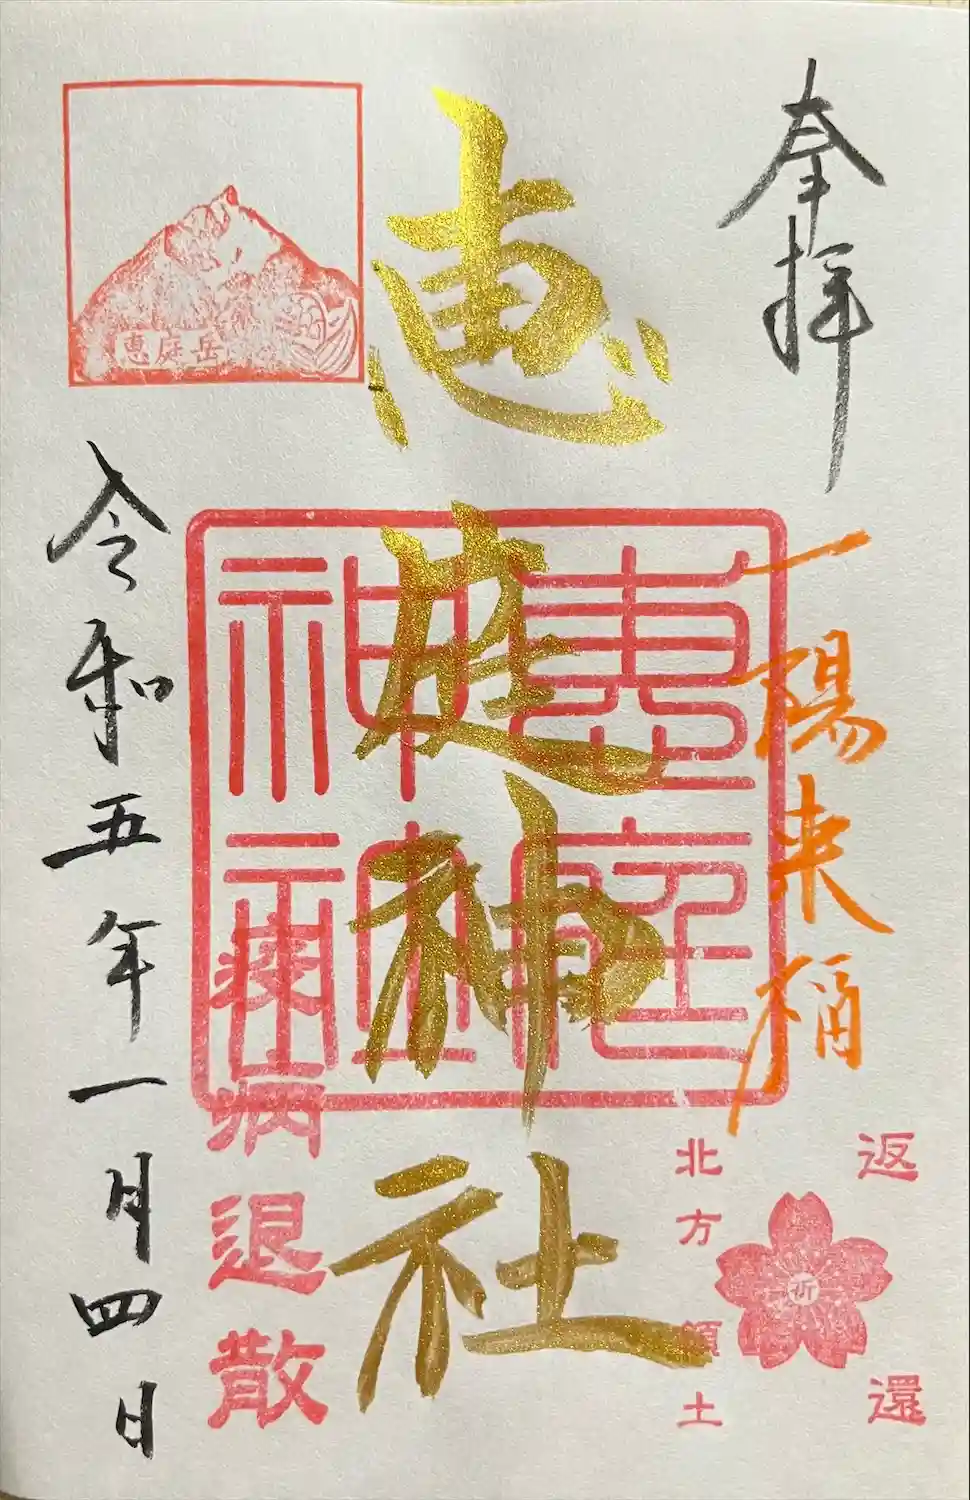 奉拝
一陽来福
返還
北方領土
祈
恵庭神社
惠庭
神社
恵庭岳
疫病退散
令和五年一月四日